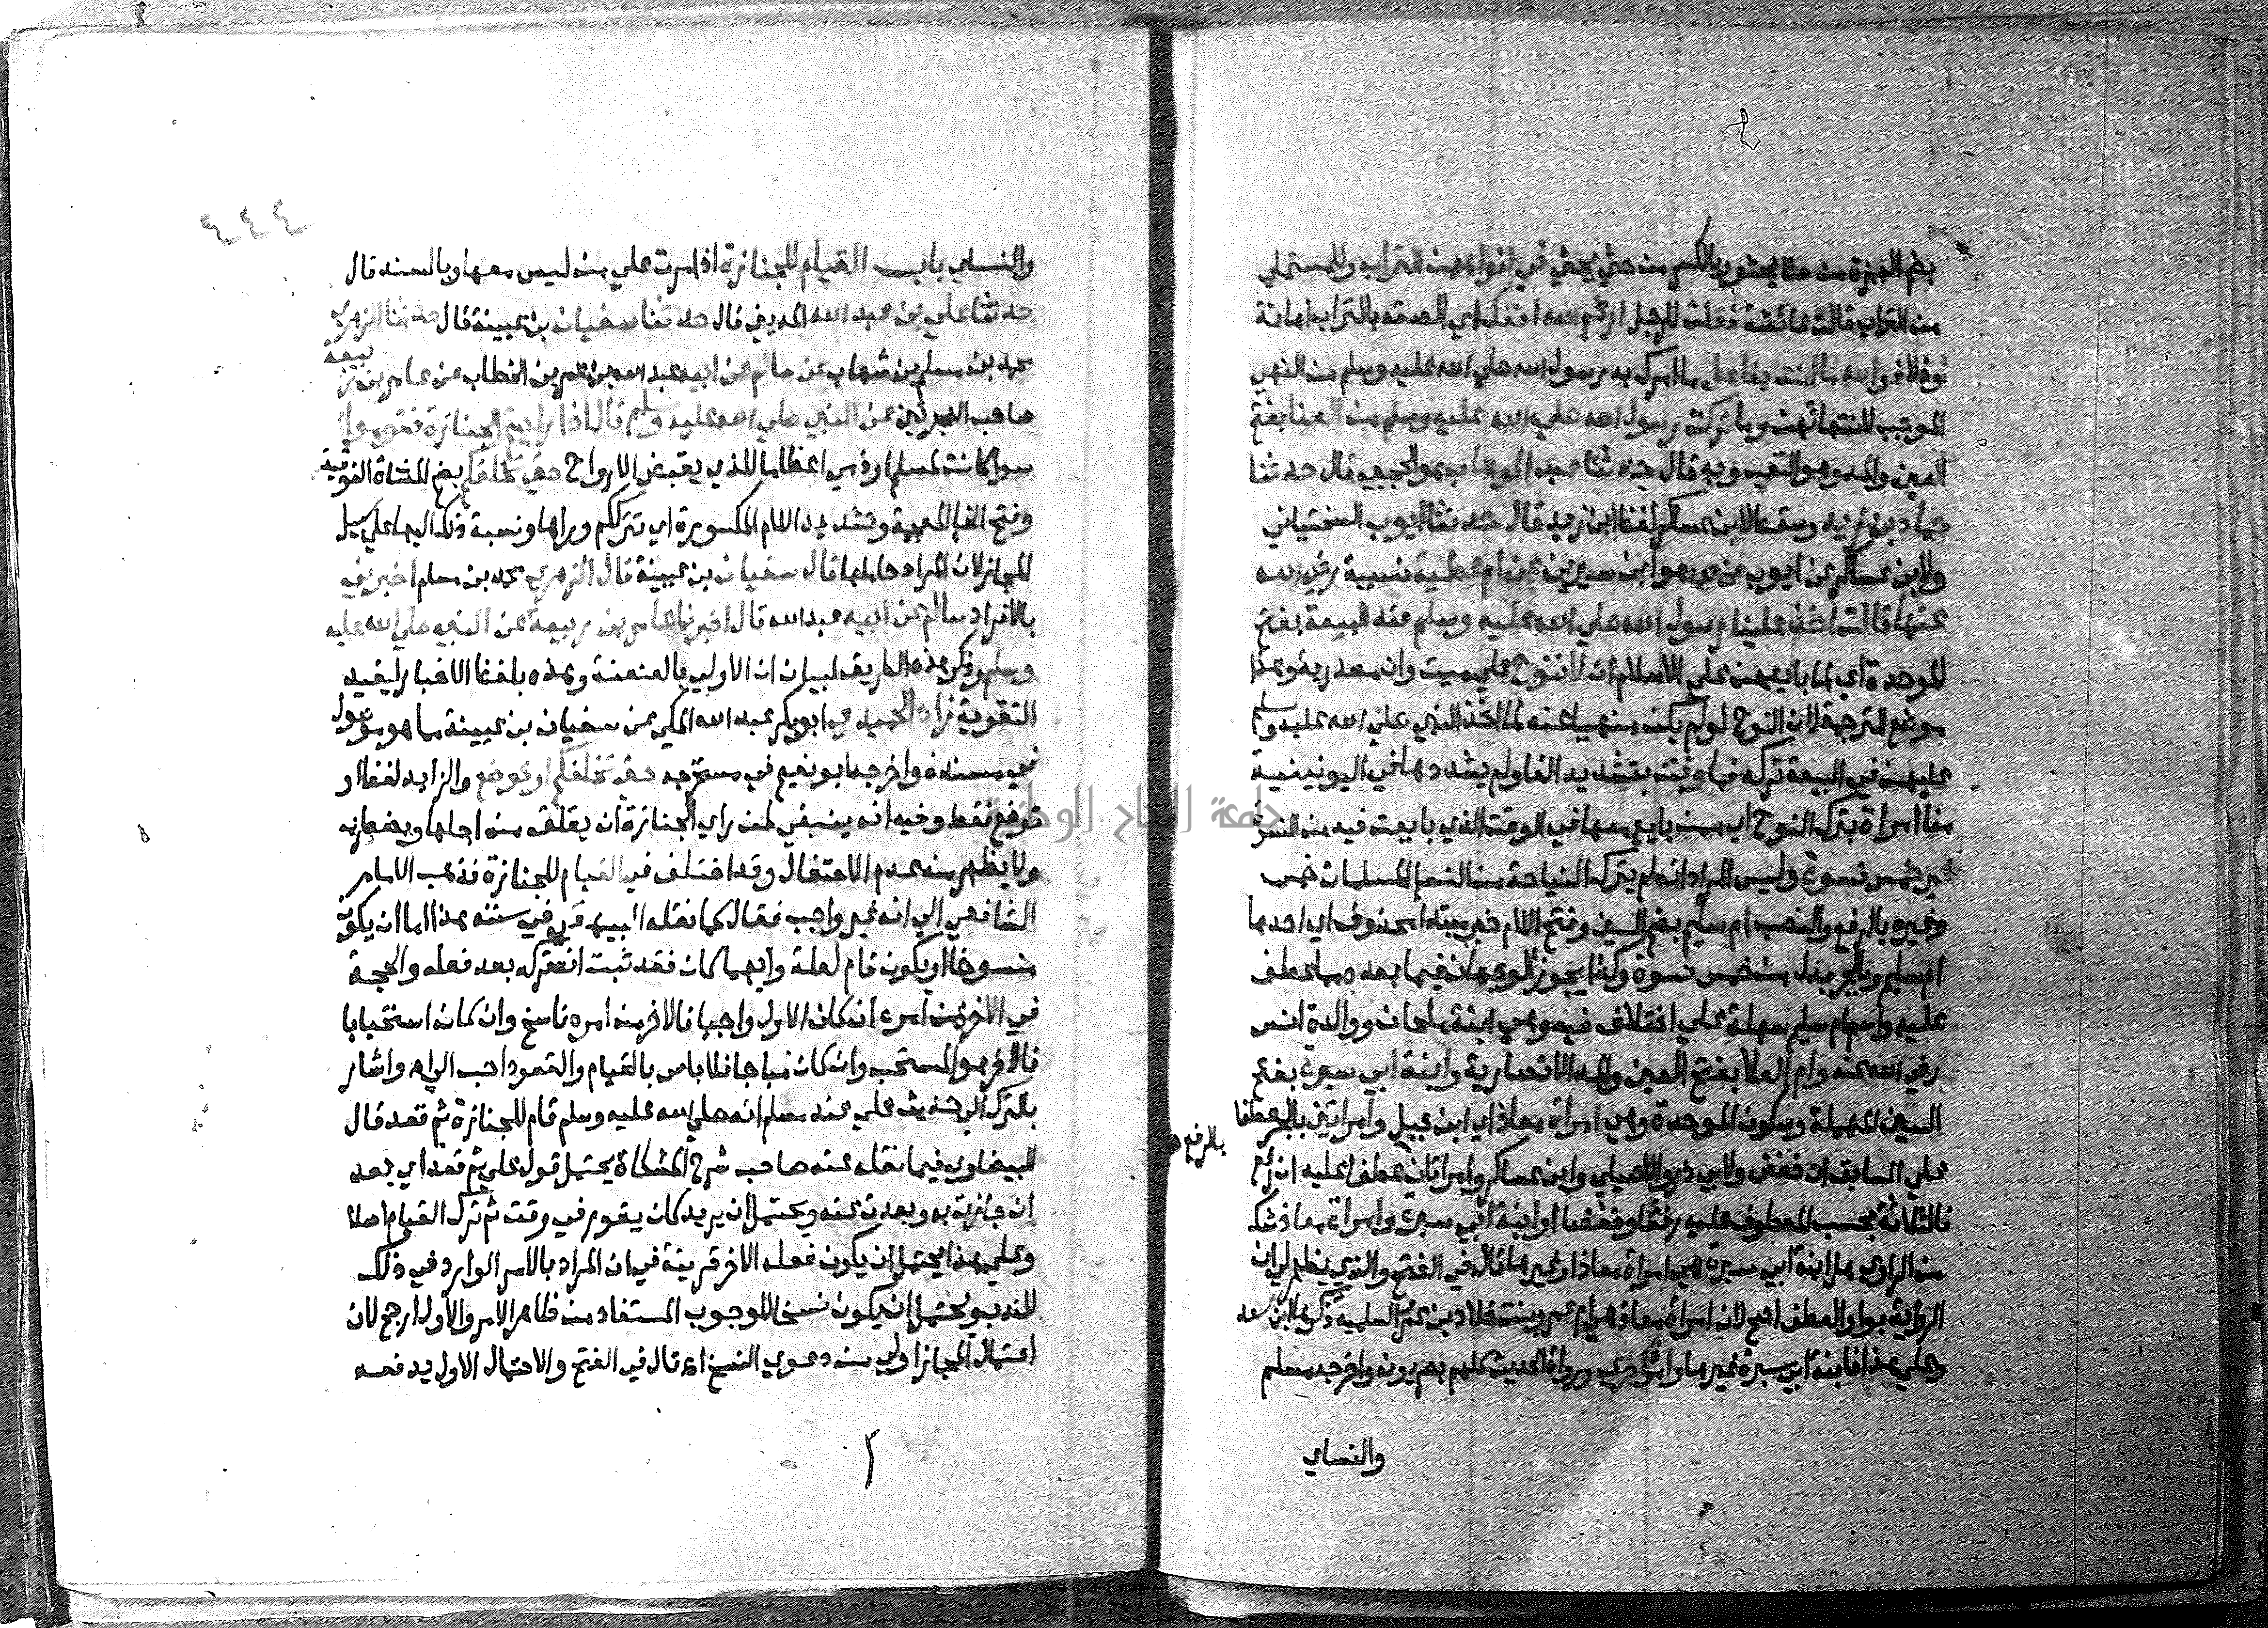 بضم الهمزة من حثا يحثو وبالكسر من حثي يحثي في افواههن التراب وللمستملي
من التراب قالت عائشة فقلت للرجل ارغم الله انفك اي الصقه بالتراب اهانة
وذلا فوالله ما انت بفاعل ما امرك به رسول الله صلي الله عليه وسلم من النهي
الموجب لانتهائهن وما تركت رسول الله صلي الله عليه وسلم من العنا بفتح
العين والمد وهو التعب وبه قال حدثنا عبد الوهاب هو الحجبي قال حدثنا
حماد بن زيد وسقط لابن عساكر لفظ ابن زيد قال حدثنا ايوب السختياني
ولابن عساكر عن ايوب عن محمد هو ابن سيرين عن ام عطية نسيبة رضي الله
عنها قالت اخذ علينا رسول الله صلي الله عليه وسلم عند البيعة بفتح
الموحدة اي لما بايعهن علي الاسلام ان لا ننوح علي ميت وانه معد ريقو هذا
موضع الترجمة لان النوح لو لم يكن منهيا عنه لما اخذ النبي صلي الله عليه وسلم
عليهن في البيعة تركه فما وفت بتشديد الفا ولم يشددها في اليونينية
منا امراة بترك النوح اي ممن بايع معها في الوقت الذي بايعت فيه من النسوة
غير خمس نسوة وليس المراد انه لم يترك النياحة من النسا المسلمات خمس
وغيره بالرفع والنصب ام سليم بضم السين وفتح اللام خبر مبتدا محذوف اي احدها
ام سليم وبالجر بدل من خمس نسوة وكذا يجوز الوجهان فيما بعده مما عطف
عليه واسم ام سليم سهلة علي اختلاف فيه وهي ابنة ملحان ووالدة انس
رضي الله عنه وام العلا بفتح العين والمد الانصارية وابنة ابي سبرة بفتح
السين المهملة وسكون الموحدة وهي امراة معاذ اي ابن جبل وامراتين بالجر عطفا
علي السابق ان خفض ولابي ذر والاصيلي وابن عساكر وامراتان عطفا عليه ان رفع
بالرفع
فالثلاثة بحسب المعطوف عليه رفعا وخفضا او ابنة ابي سبرة وامراة معاذ شك
من الراوي هل ابنة ابي سبرة هي امراة معاذ او غيرها قال في الفتح والذي يظهر لي ان
الرواية بواو العطف اصح لان امراة معاذ هي ام عمرو بنت خلاد بن عمرو السلمية ذكرها ابن سعد
وعلي هذا فابنة ابي سبرة غيرها ورواة الحديث كلهم بصريون واخرجه مسلم
والنساي
٤٤٤
والنساي باب القيام للجنازة اذا مرت علي من ليس معها وبالسند قال
حدثنا علي بن عبد الله المديني قال حدثنا سفيان بن عيينة قال حدثنا الزهري
محمد بن مسلم بن شهاب عن سالم عن ابيه عبد الله بن عمر بن الخطاب عن عامر بن ربيعة
صاحب الهجرتين عن النبي صلي الله عليه وسلم قال اذا رايتم الجنازة فقوموا
سوا كانت لمسلم او ذمي اعظاما للذي يقبض الارواح حتي تخلفكم بضم المثناة الفوقية
وفتح الخا المعجمة وتشديد اللام المكسورة اي تترككم وراها ونسبة ذلك اليها علي سبيل
المجاز لان المراد حاملها قال سفيان بن عيينة قال الزهري محمد بن مسلم اخبرني
بالافراد سالم عن ابيه عبد الله قال اخبرنا عامر بن ربيعة عن النبي صلي الله عليه
وسلم وذكر هذه الطريق لبيان ان الاولي بالعنعنة وهذه بلفظ الاخبار ليفيد
التقوية زاد الحميدي ابو بكر عبد الله المكي عن سفيان بن عيينة مما هو موصول
في مسنده واخرجه ابو نعيم في مستخرجه حتي تخلفكم او توضع والزايد لفظ او
توضع فقط وفيه انه ينبغي لمن راي الجنازة ان يقلق من اجلها ويضطرب
ولا يظهر منه عدم الاحتفال وقد اختلف في القيام للجنازة فذهب الامام
الشافعي الي انه غير واجب فقال كما نقله البيهقي في سننه هذا اما ان يكون
منسوخا او يكون قام لعلة وايهما كان فقد ثبت انه تركه بعد فعله والحجة
في الاخر من امره ان كان الاول واجبا فالاخر من امره ناسخ وان كان استحبابا
فالاخر هو المستحب وان كان مباحا فلا باس بالقيام والقعود احب الي اه واشار
بالترك الي حديث علي عند مسلم انه صلي الله عليه وسلم قام للجنازة ثم قعد قال
البيضاوي فيما نقله عنه صاحب شرح المشكاة يحتمل قول علي ثم قعد اي بعد
ان جازت به وبعدت عنه ويحتمل ان يريد كان يقوم في وقت ثم ترك القيام اصلا
وعلي هذا يحتمل ان يكون فعله الاخر قرينة في ان المراد بالامر الوارد في ذلك
الندب ويحتمل ان يكون نسخا للوجوب المستفاد من ظاهر الامر والاول ارجح لان
احتمال المجاز اولي من دعوي النسخ اه قال في الفتح والاحتمال الاول يدفعه
جامعة النجاح الوطنية